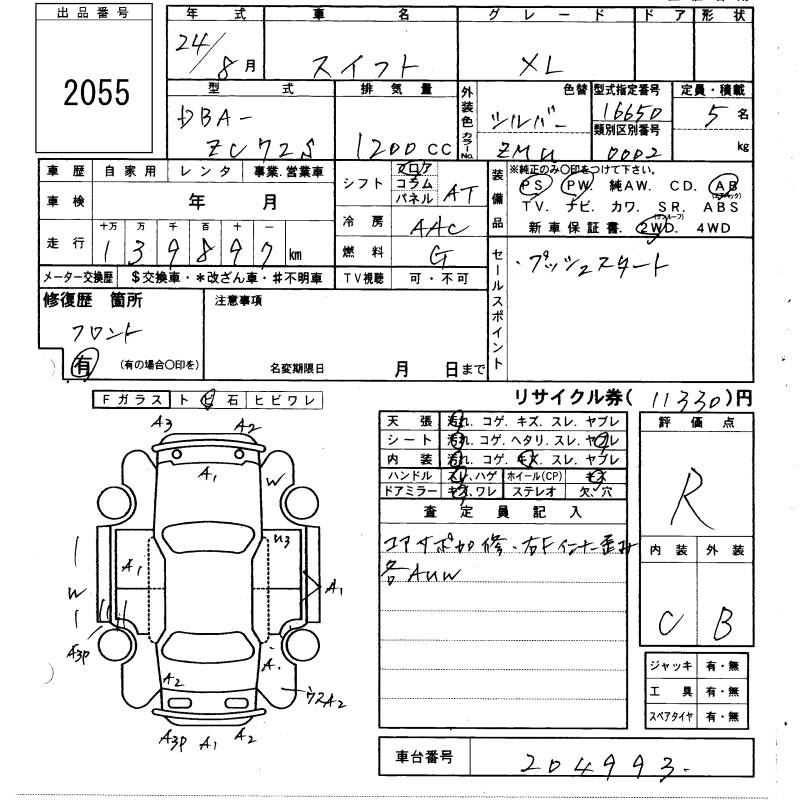 出品番号
2055
年式
24/8月
車名
スイフト
グレード
XL
ドア 形状
型式
DBA-
ZC72S
排気量
1200cc
外装色 カラーNo. 色替
シルバー
ZMU
型式指定番号
16650
類別区別番号
0002
定員・積載
5名
kg
車歴 自家用 レンタ 事業.営業車
車検 年 月
走行 十万 万 千 百 十 一
139897 km
メーター交換歴 $交換車・*改ざん車・#不明車
シフト フロア コラム パネル AT
冷房 AAC
燃料 G
TV視聴 可・不可
装備品
※純正のみ〇印をつけて下さい。
PS. PW. 純AW. CD. AB
TV. ナビ. カワ. SR. ABS
新車保証書. 2WD. 4WD
セールスポイント
・プッシュスタート
修復歴 箇所
フロント
有 (有の場合〇印を)
注意事項
名変期限日 月 日まで
リサイクル券( 11330 )円
Fガラス トビ石 ヒビワレ
A3 A2
A1
W
W3
A1
A1
W
A3P
A.
A2
ウスA2
A3P A1 A2
天張 汚れ. コゲ. キズ. スレ. ヤブレ
シート 汚れ. コゲ. ヘタリ. スレ. ヤブレ
内装 汚れ. コゲ. キズ. スレ. ヤブレ
ハンドル スレ.ハゲ ホイール(CP) キズ
ドアミラー キズ.ワレ ステレオ 欠.穴
査定員記入
コアサポ加修・右Fインナー歪み
各AUW
評価点
R
内装 外装
C B
ジャッキ 有・無
工具 有・無
スペアタイヤ 有・無
車台番号 204993.